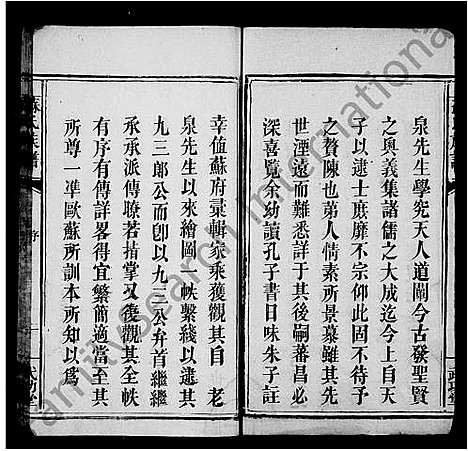 泉先生學究天人道闡今古發聖賢
之奧義集諸儒之大成迄今上自天
子以逮士庶靡不宗仰此不待予
之贅陳也第人情素所景慕雖其先
世湮遠而難悉詳于其後嗣蕃昌必
深喜覽余幼讀孔子書日味朱子註
幸值蘇府彙輯家乘獲觀其自 老
泉先生以來繪圖一帙繫綫以遞其
九三郎公而卽以九三公弁首繼繼
承承派傳瞭若指掌又復觀其全帙
有序有傳詳畧得宜繁簡適當至其
所尊一準歐蘇所訓本所知以爲
蘇氏族譜
序
武功堂
familysearch international